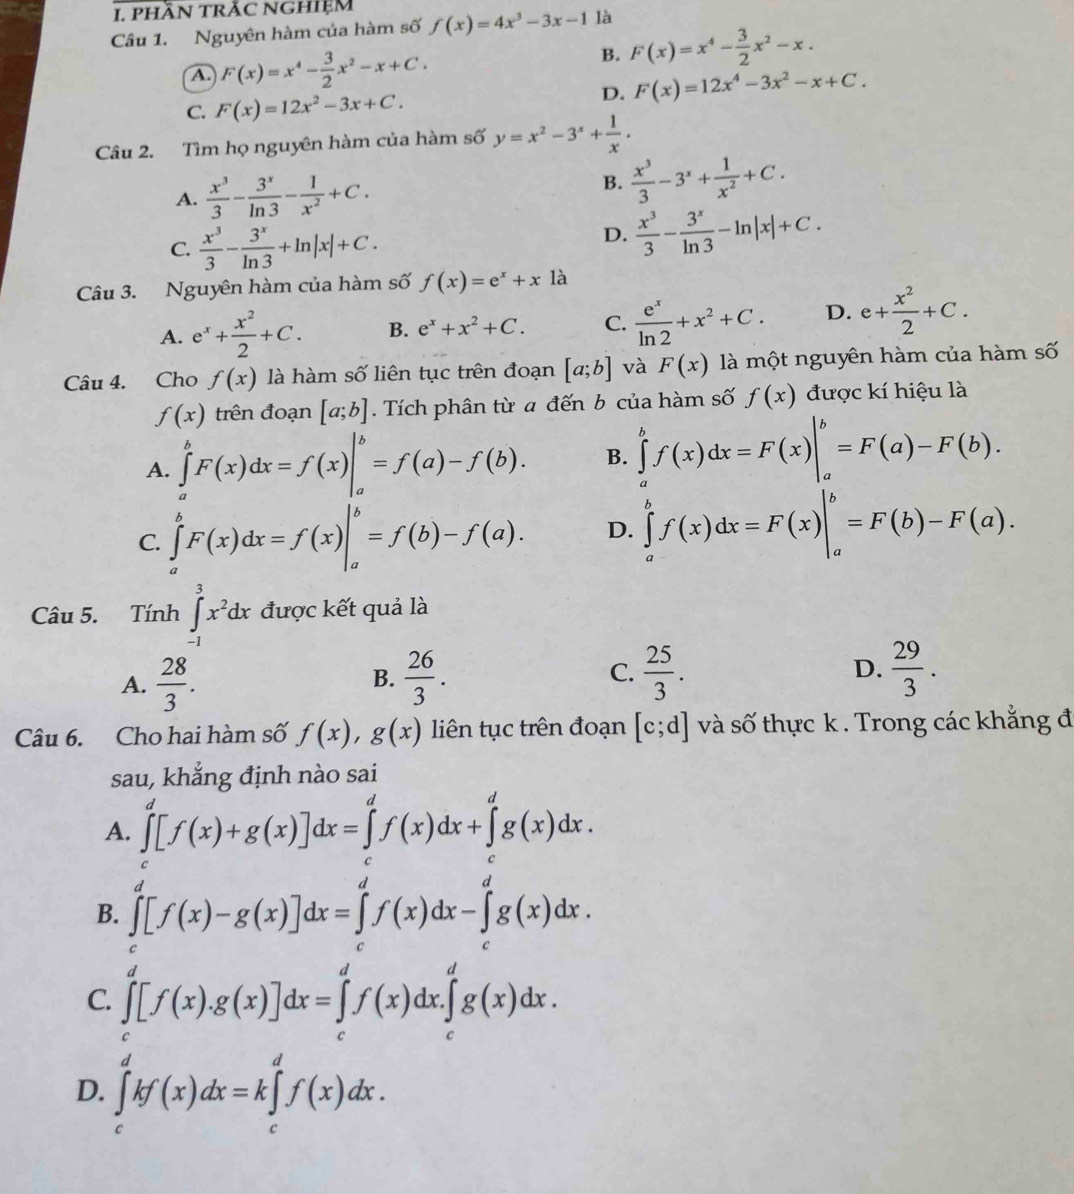 I. PHẦN TRẮC NGHIỆM
Câu 1. Nguyên hàm của hàm số f(x) = 4x³ − 3x − 1 là
A. F(x) = x⁴ − \frac{3}{2}x² − x + C. B. F(x) = x⁴ − \frac{3}{2}x² − x.
C. F(x) = 12x² − 3x + C. D. F(x) = 12x⁴ − 3x² − x + C.
Câu 2. Tìm họ nguyên hàm của hàm số y = x² − 3ˣ + \frac{1}{x}.
A. \frac{x³}{3} − \frac{3ˣ}{ln 3} − \frac{1}{x²} + C. B. \frac{x³}{3} − 3ˣ + \frac{1}{x²} + C.
C. \frac{x³}{3} − \frac{3ˣ}{ln 3} + ln|x| + C. D. \frac{x³}{3} − \frac{3ˣ}{ln 3} − ln|x| + C.
Câu 3. Nguyên hàm của hàm số f(x) = eˣ + x là
A. eˣ + \frac{x²}{2} + C. B. eˣ + x² + C. C. \frac{eˣ}{ln 2} + x² + C. D. e + \frac{x²}{2} + C.
Câu 4. Cho f(x) là hàm số liên tục trên đoạn [a;b] và F(x) là một nguyên hàm của hàm số
f(x) trên đoạn [a;b]. Tích phân từ a đến b của hàm số f(x) được kí hiệu là
A. \int_a^b F(x)dx = f(x)|_a^b = f(a) − f(b). B. \int_a^b f(x)dx = F(x)|_a^b = F(a) − F(b).
C. \int_a^b F(x)dx = f(x)|_a^b = f(b) − f(a). D. \int_a^b f(x)dx = F(x)|_a^b = F(b) − F(a).
Câu 5. Tính \int_{-1}^3 x²dx được kết quả là
A. \frac{28}{3}. B. \frac{26}{3}. C. \frac{25}{3}. D. \frac{29}{3}.
Câu 6. Cho hai hàm số f(x), g(x) liên tục trên đoạn [c;d] và số thực k. Trong các khẳng đ
sau, khẳng định nào sai
A. \int_c^d [f(x) + g(x)]dx = \int_c^d f(x)dx + \int_c^d g(x)dx.
B. \int_c^d [f(x) − g(x)]dx = \int_c^d f(x)dx − \int_c^d g(x)dx.
C. \int_c^d [f(x).g(x)]dx = \int_c^d f(x)dx.\int_c^d g(x)dx.
D. \int_c^d kf(x)dx = k\int_c^d f(x)dx.